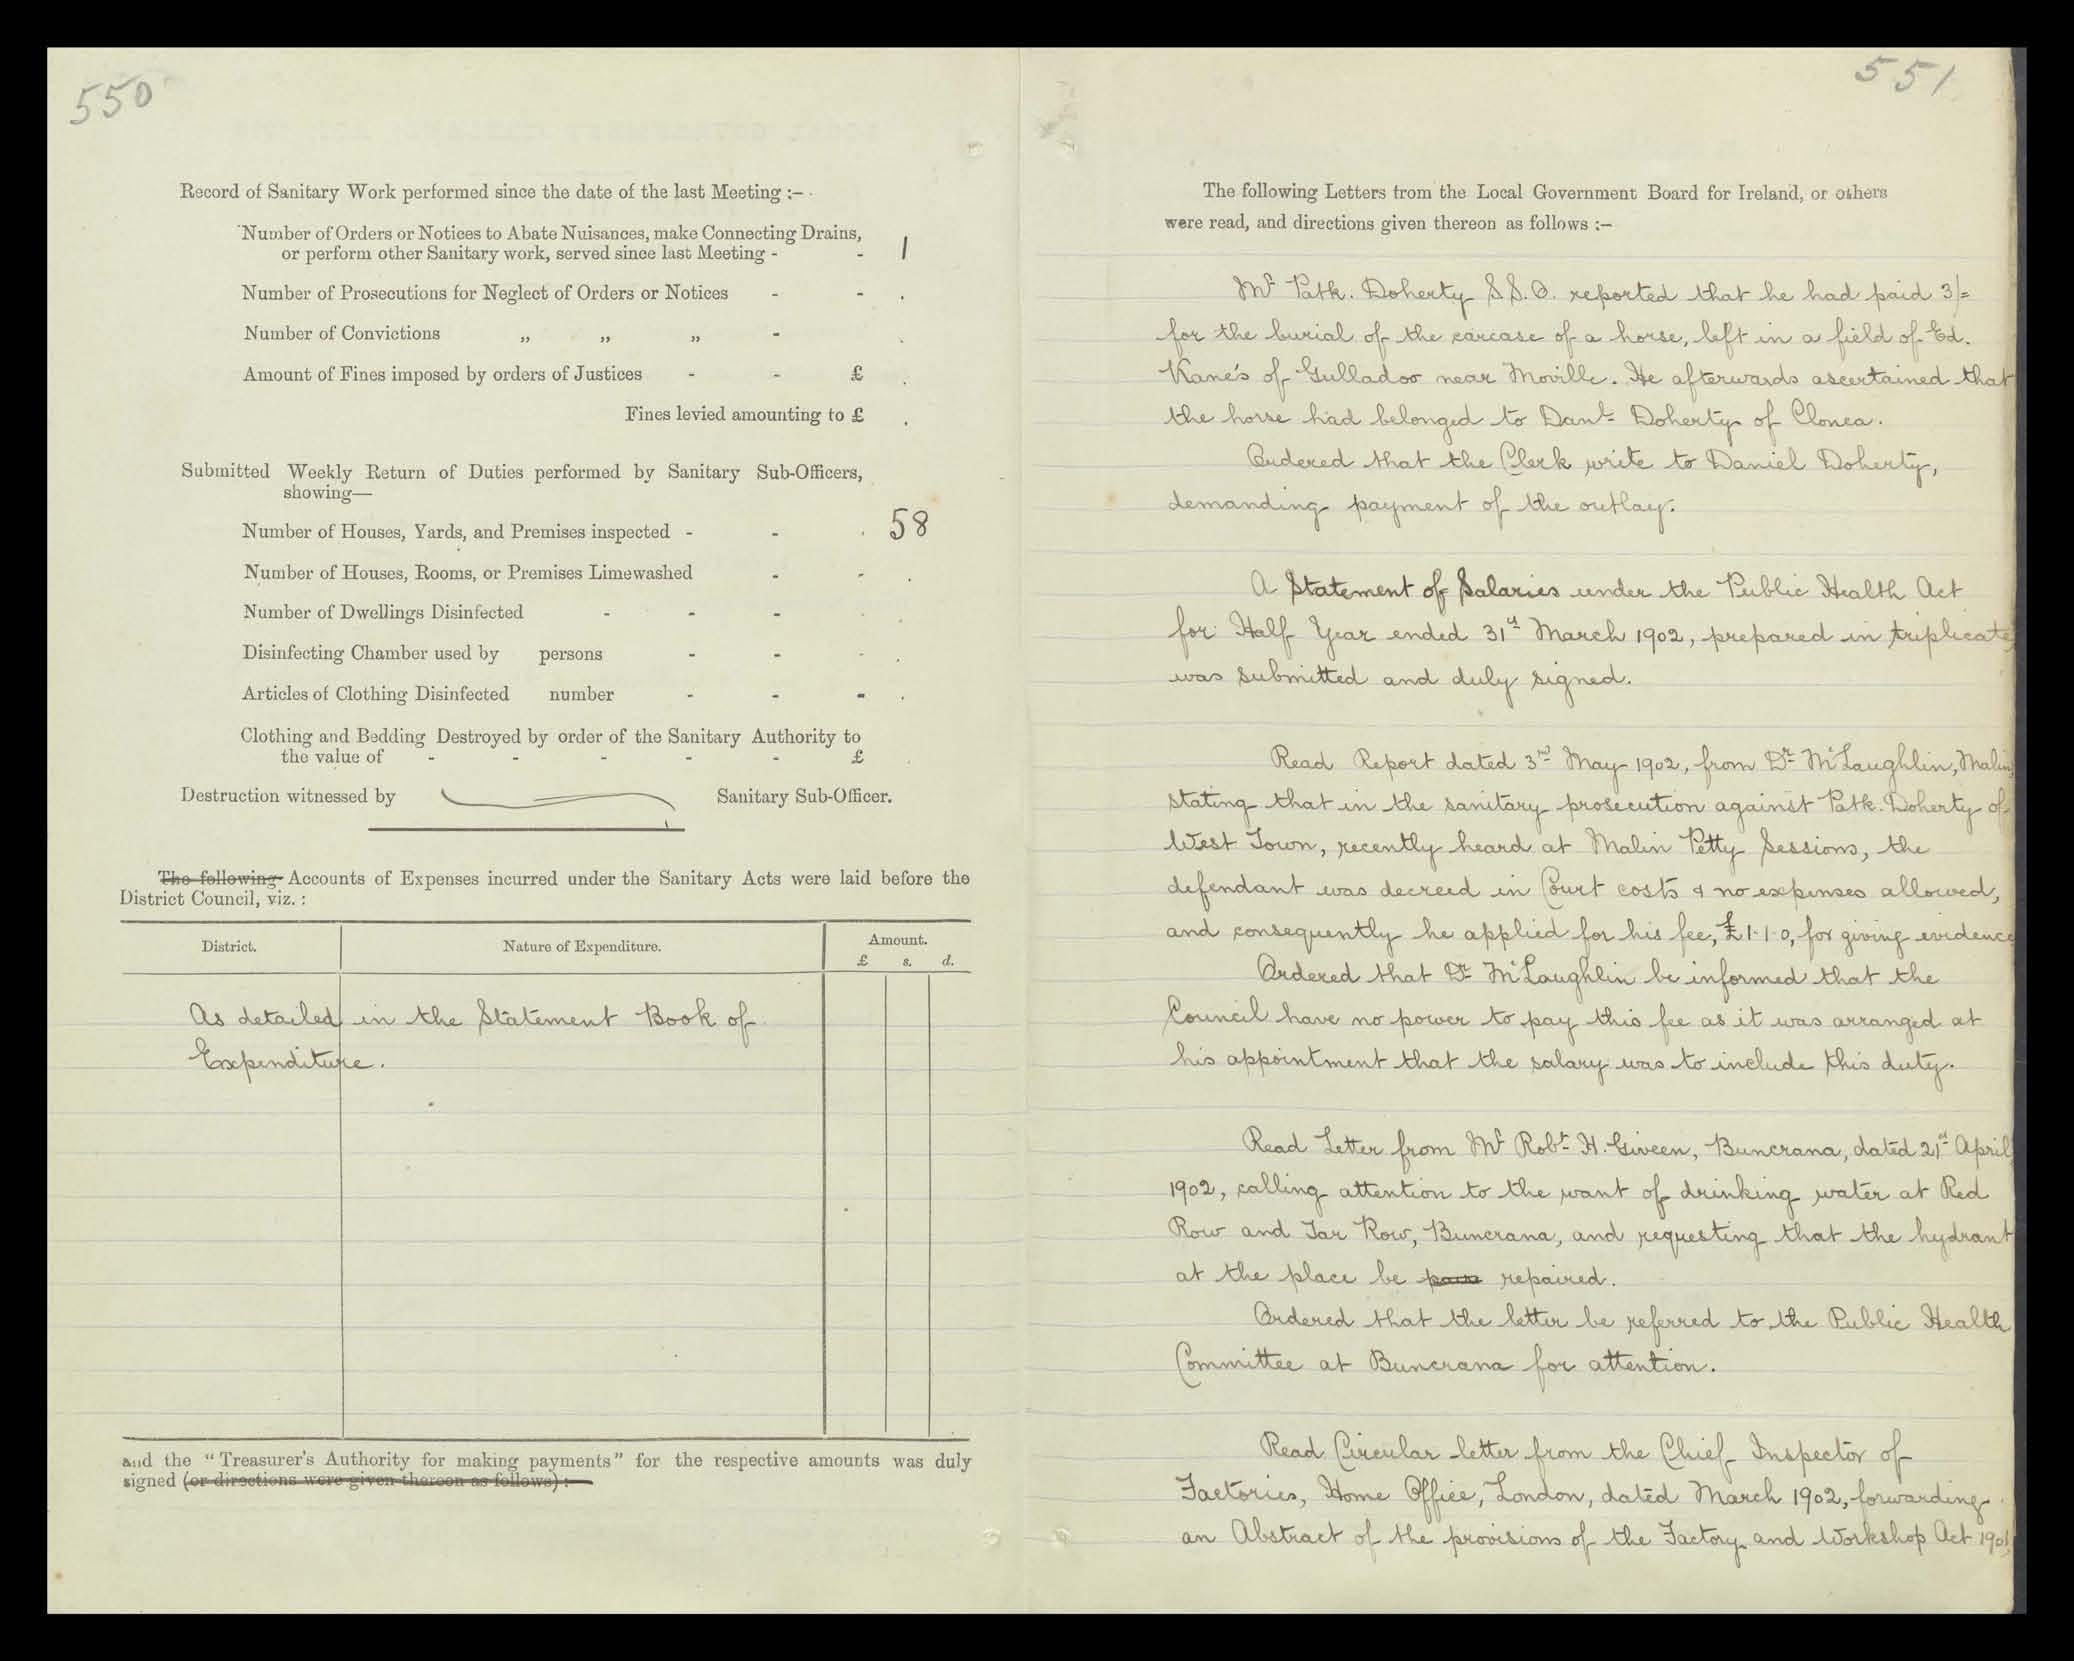 550
Record of Sanitary Work performed since the date of the last Meeting :-
Number of Orders or Notices to Abate Nuisances, make Connecting Drains,
or perform other Sanitary work, served since last Meeting - - 1
Number of Prosecutions for Neglect of Orders or Notices - -
Number of Convictions „ „ „ -
Amount of Fines imposed by orders of Justices - - £
Fines levied amounting to £
Submitted Weekly Return of Duties performed by Sanitary Sub-Officers,
showing—
Number of Houses, Yards, and Premises inspected - - 58
Number of Houses, Rooms, or Premises Limewashed - -
Number of Dwellings Disinfected - - -
Disinfecting Chamber used by persons - - -
Articles of Clothing Disinfected number - - -
Clothing and Bedding Destroyed by order of the Sanitary Authority to
the value of - - - - - £
Destruction witnessed by Sanitary Sub-Officer.
The following Accounts of Expenses incurred under the Sanitary Acts were laid before the
District Council, viz. :
District. Nature of Expenditure. Amount.
£ s. d.
As detailed in the Statement Book of
Expenditure.
and the "Treasurer's Authority for making payments" for the respective amounts was duly
signed (or directions were given thereon as follows) :—
551
The following Letters from the Local Government Board for Ireland, or others
were read, and directions given thereon as follows :—
Mr Patk. Doherty S.S.O. reported that he had paid 3/=
for the burial of the carcase of a horse, left in a field of Ed.
Kane's of Gulladoo near Moville. He afterwards ascertained that
the horse had belonged to Danl Doherty of Clonca.
Ordered that the Clerk write to Daniel Doherty,
demanding payment of the outlay.
A Statement of Salaries under the Public Health Act
for Half Year ended 31st March 1902, prepared in triplicate,
was submitted and duly signed.
Read Report dated 3rd May 1902, from Dr McLaughlin, Malin,
stating that in the sanitary prosecution against Patk. Doherty of
West Town, recently heard at Malin Petty Sessions, the
defendant was decreed in Court costs & no expenses allowed,
and consequently he applied for his fee, £1.1.0, for giving evidence
Ordered that Dr McLaughlin be informed that the
Council have no power to pay this fee as it was arranged at
his appointment that the salary was to include this duty.
Read Letter from Mr Robt H. Giveen, Buncrana, dated 21st April
1902, calling attention to the want of drinking water at Red
Row and Tar Row, Buncrana, and requesting that the hydrant
at the place be repaired.
Ordered that the letter be referred to the Public Health
Committee at Buncrana for attention.
Read Circular letter from the Chief Inspector of
Factories, Home Office, London, dated March 1902, forwarding
an Abstract of the provisions of the Factory and Workshop Act 1901,